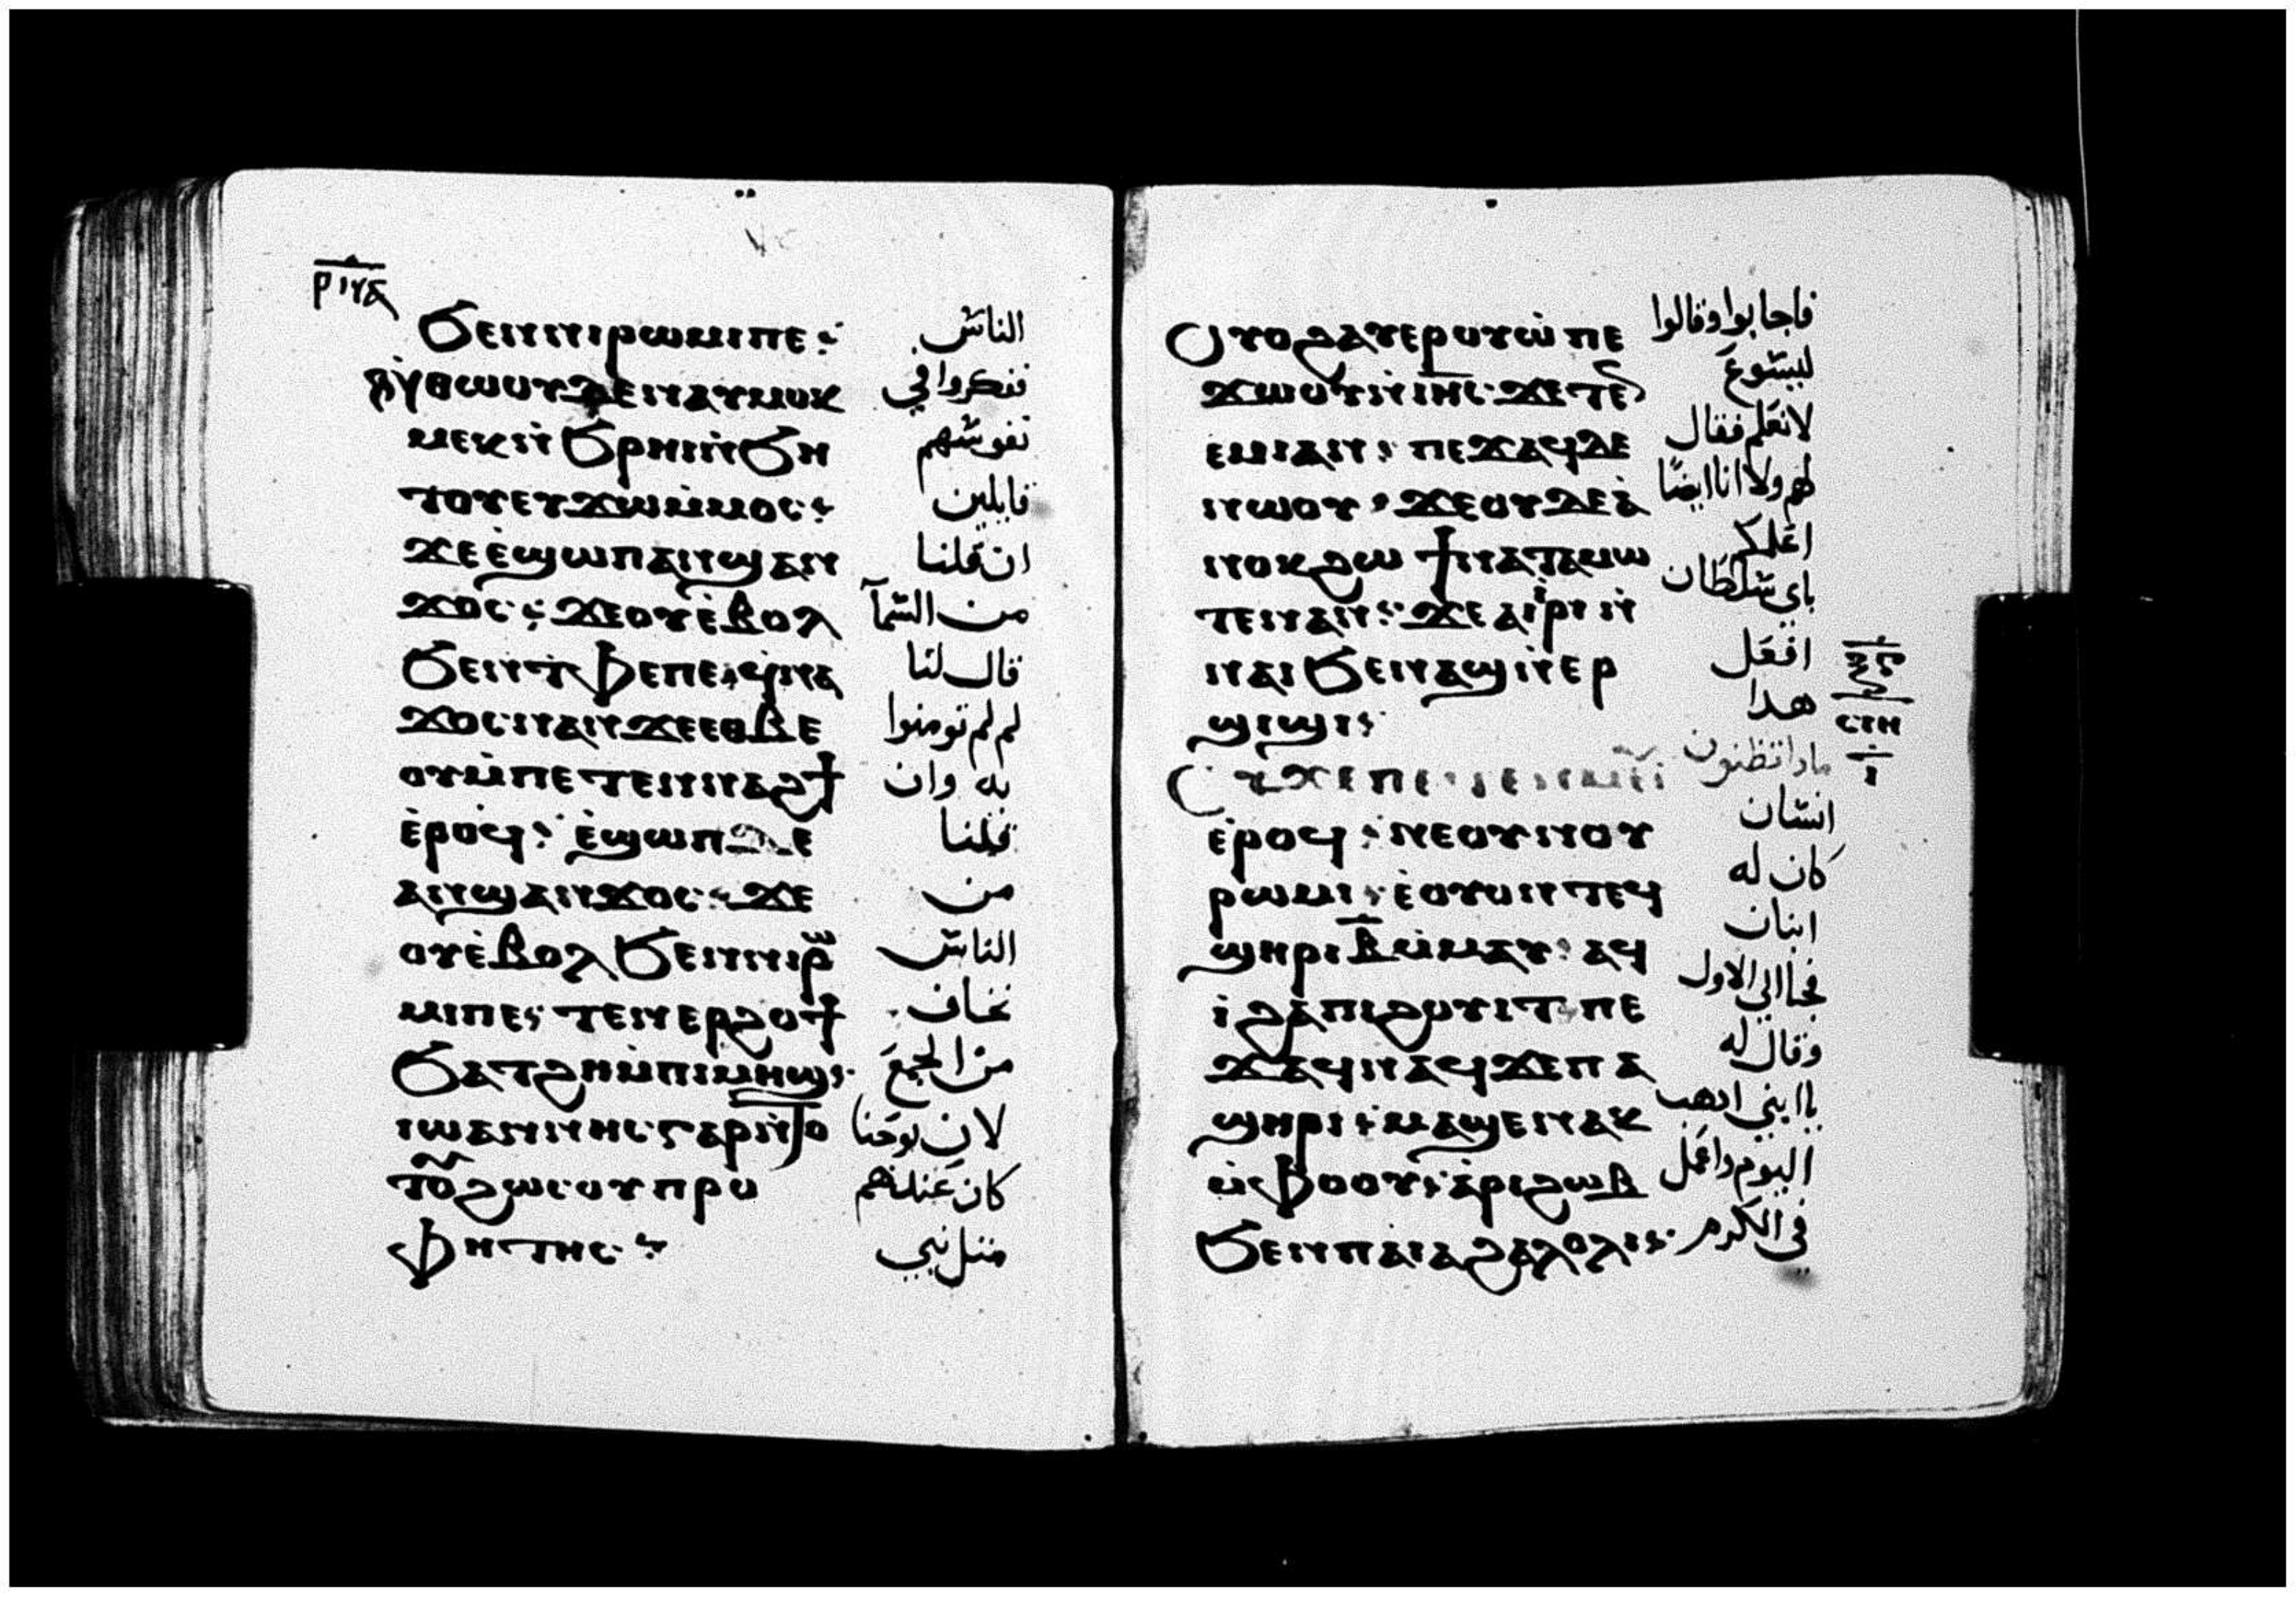 ⲣⲓⲅⲁ
ϧⲉⲛⲛⲓⲣⲱⲙⲓⲡⲉ⳾ الناس
ⲛⲑⲱⲟⲩⲇⲉⲛⲁⲩⲙⲟⲕ ففكروا في
ⲙⲉⲕⲛ̇ϧⲣⲏⲓⲛ̇ϧⲏ نفوسهم
ⲧⲟⲩⲉⲩϫⲱⲙ̇ⲙⲟⲥ⳾ قايلين
ϫⲉⲉ̇ϣⲱⲡⲁⲛϣⲁⲛ ان قلنا
ϫⲟⲥ⳾ ϫⲉⲟⲩⲉ̇ⲃⲟⲗ من السمآ
ϧⲉⲛⲧ̇ⲫⲉⲡⲉ⳾ϥ̇ⲛⲁ قال لنا
ϫⲟⲥⲛⲁⲛϫⲉⲉⲑⲃⲉ لم لم تومنوا
ⲟⲩⲙ̇ⲡⲉⲧⲉⲛⲛⲁϩϯ به وان
ⲉ̇ⲣⲟϥ⳾ ⲉ̇ϣⲱⲡⲇⲉ قلنا
ⲁⲛϣⲁⲛϫⲟⲥ⳾ ϫⲉ من
ⲟⲩⲉ̇ⲃⲟⲗϧⲉⲛⲛⲓⲣⲱ الناس
ⲙⲓⲡⲉ⳾ ⲧⲉⲛⲉⲣϩⲟϯ نخاف
ϧⲁⲧϩⲏⲙ̇ⲡⲓⲙⲏϣ⳾ من الجمع
ⲓⲱⲁⲛⲛⲏⲥⲅⲁⲣⲛ̇ⲧⲟ لان يوحنا
ⲧⲟⲩϩⲱⲥⲟⲩⲡⲣⲟ كان عندهم
ⲫⲏⲧⲏⲥ⳾ مثل نبي
ⲟⲩⲟϩⲁⲩⲉⲣⲟⲩⲱ̇ⲡⲉ فاجابوا وقالوا
ϫⲱⲟⲩⲛ̇ⲓⲏⲥ⳾ ϫⲉⲧⲉⲛ ليسوع
ⲉⲙⲓⲁⲛ⳾ ⲡⲉϫⲁϥⲇⲉ لانعلم فقال
ⲛⲱⲟⲩ⳾ ϫⲉⲟⲩⲇⲉⲁ̇ لهم ولا انا ايضًا
ⲛⲟⲕϩⲱ ϯⲛⲁⲧⲁⲙⲱ اعلمكم
ⲧⲉⲛⲁⲛ⳾ ϫⲉⲁⲓ̇ⲣⲓⲛ̇ باي سلطان
ⲛⲁⲓϧⲉⲛⲁϣⲛ̇ⲉⲣ افعل
ϣⲓϣⲓ⳾ هدا
ⲥⲓⲏ
ⲓ
ⲟⲩϫⲉⲡⲉ ماداتظنون
ⲉ̇ⲣⲟϥ⳾ ⲛⲉⲟⲩⲛⲟⲩ انسان
ⲣⲱⲙⲓ⳾ ⲉ̇ⲟⲩⲟⲛⲧⲉϥ كان له
ϣⲏⲣⲓⲃ̅ⲙ̇ⲙⲁⲩ⳾ ⲁϥ ابنان
ⲓ̇ϩⲁⲡⲓϩⲟⲩⲓⲧ⳾ⲡⲉ فجا الي الاول
ϫⲁϥⲛⲁϥϫⲉⲡⲁ وقال له
ϣⲏⲣⲓ⳾ ⲙⲁϣⲉⲛⲁⲕ يا ابني ادهب
ⲙ̇ⲫⲟⲟⲩ⳾ ⲁ̇ⲣⲓϩⲱⲃ اليوم واعمل
ϧⲉⲛⲡⲁⲓⲁϩⲁⲗⲟⲗⲓ⳾ في الكرم